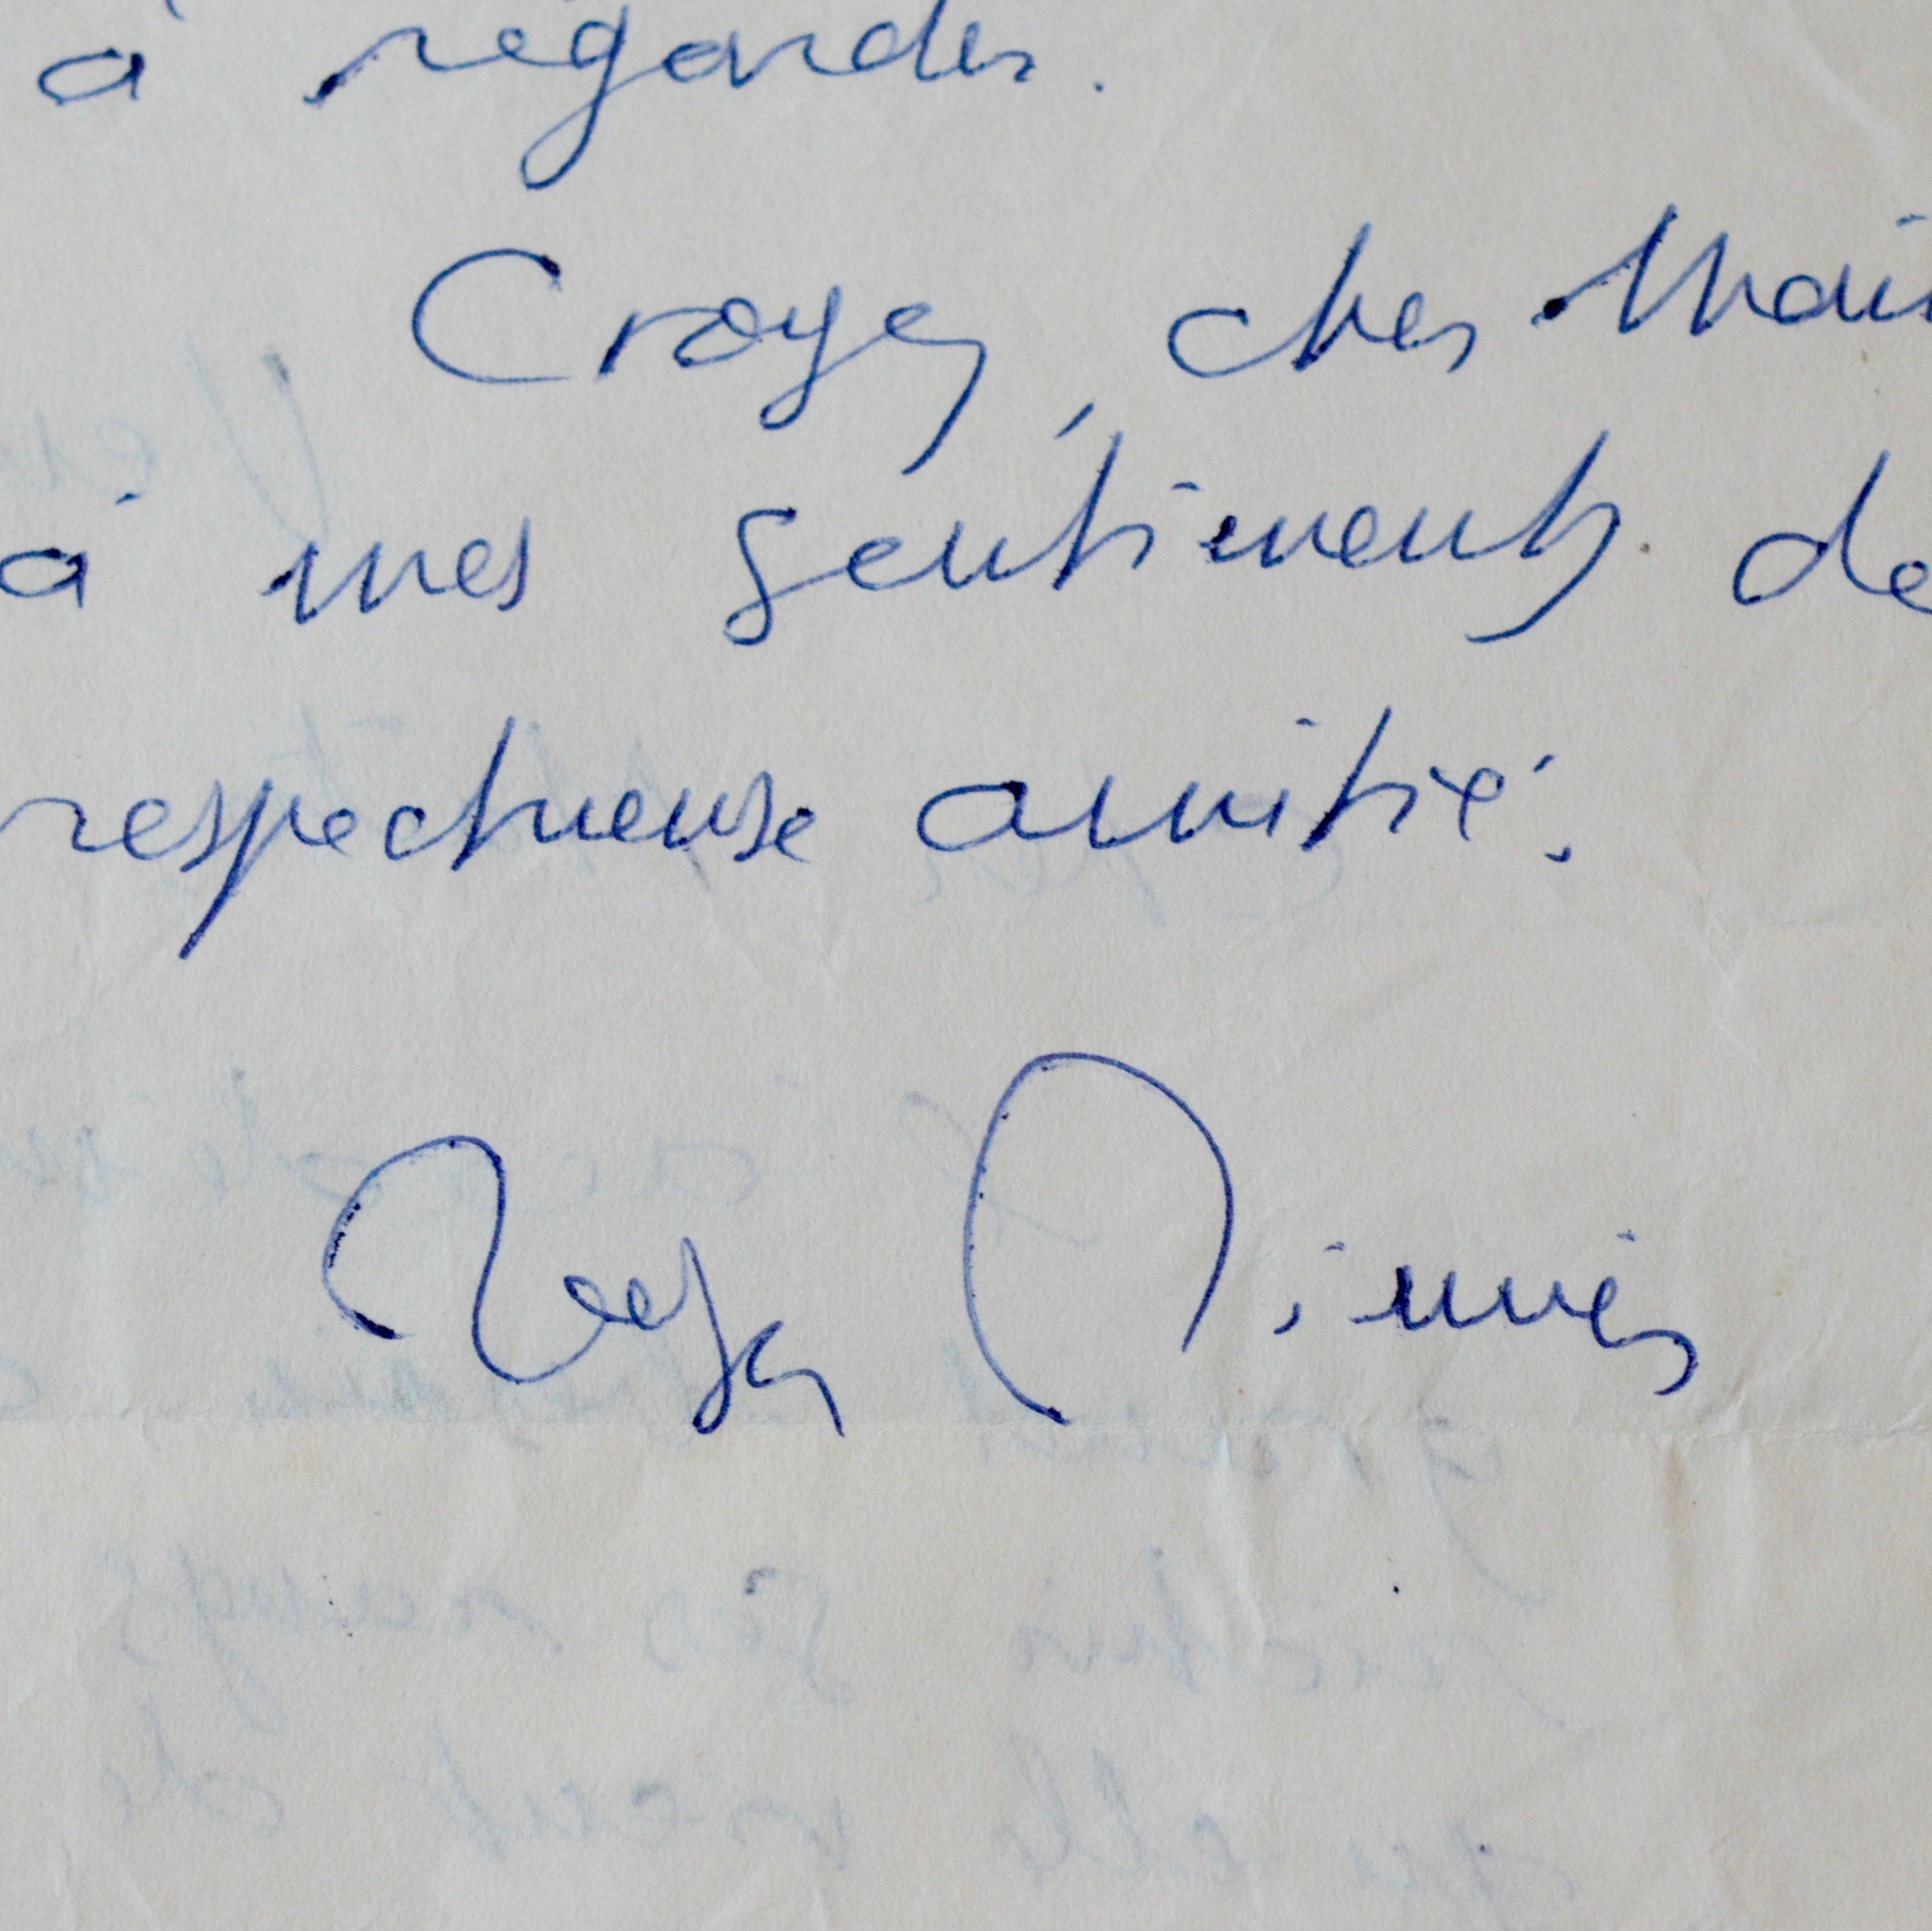 à regarder.
Croyez, cher Maî
à mes sentiments de
respectueuse amitié.
Roger Nimier